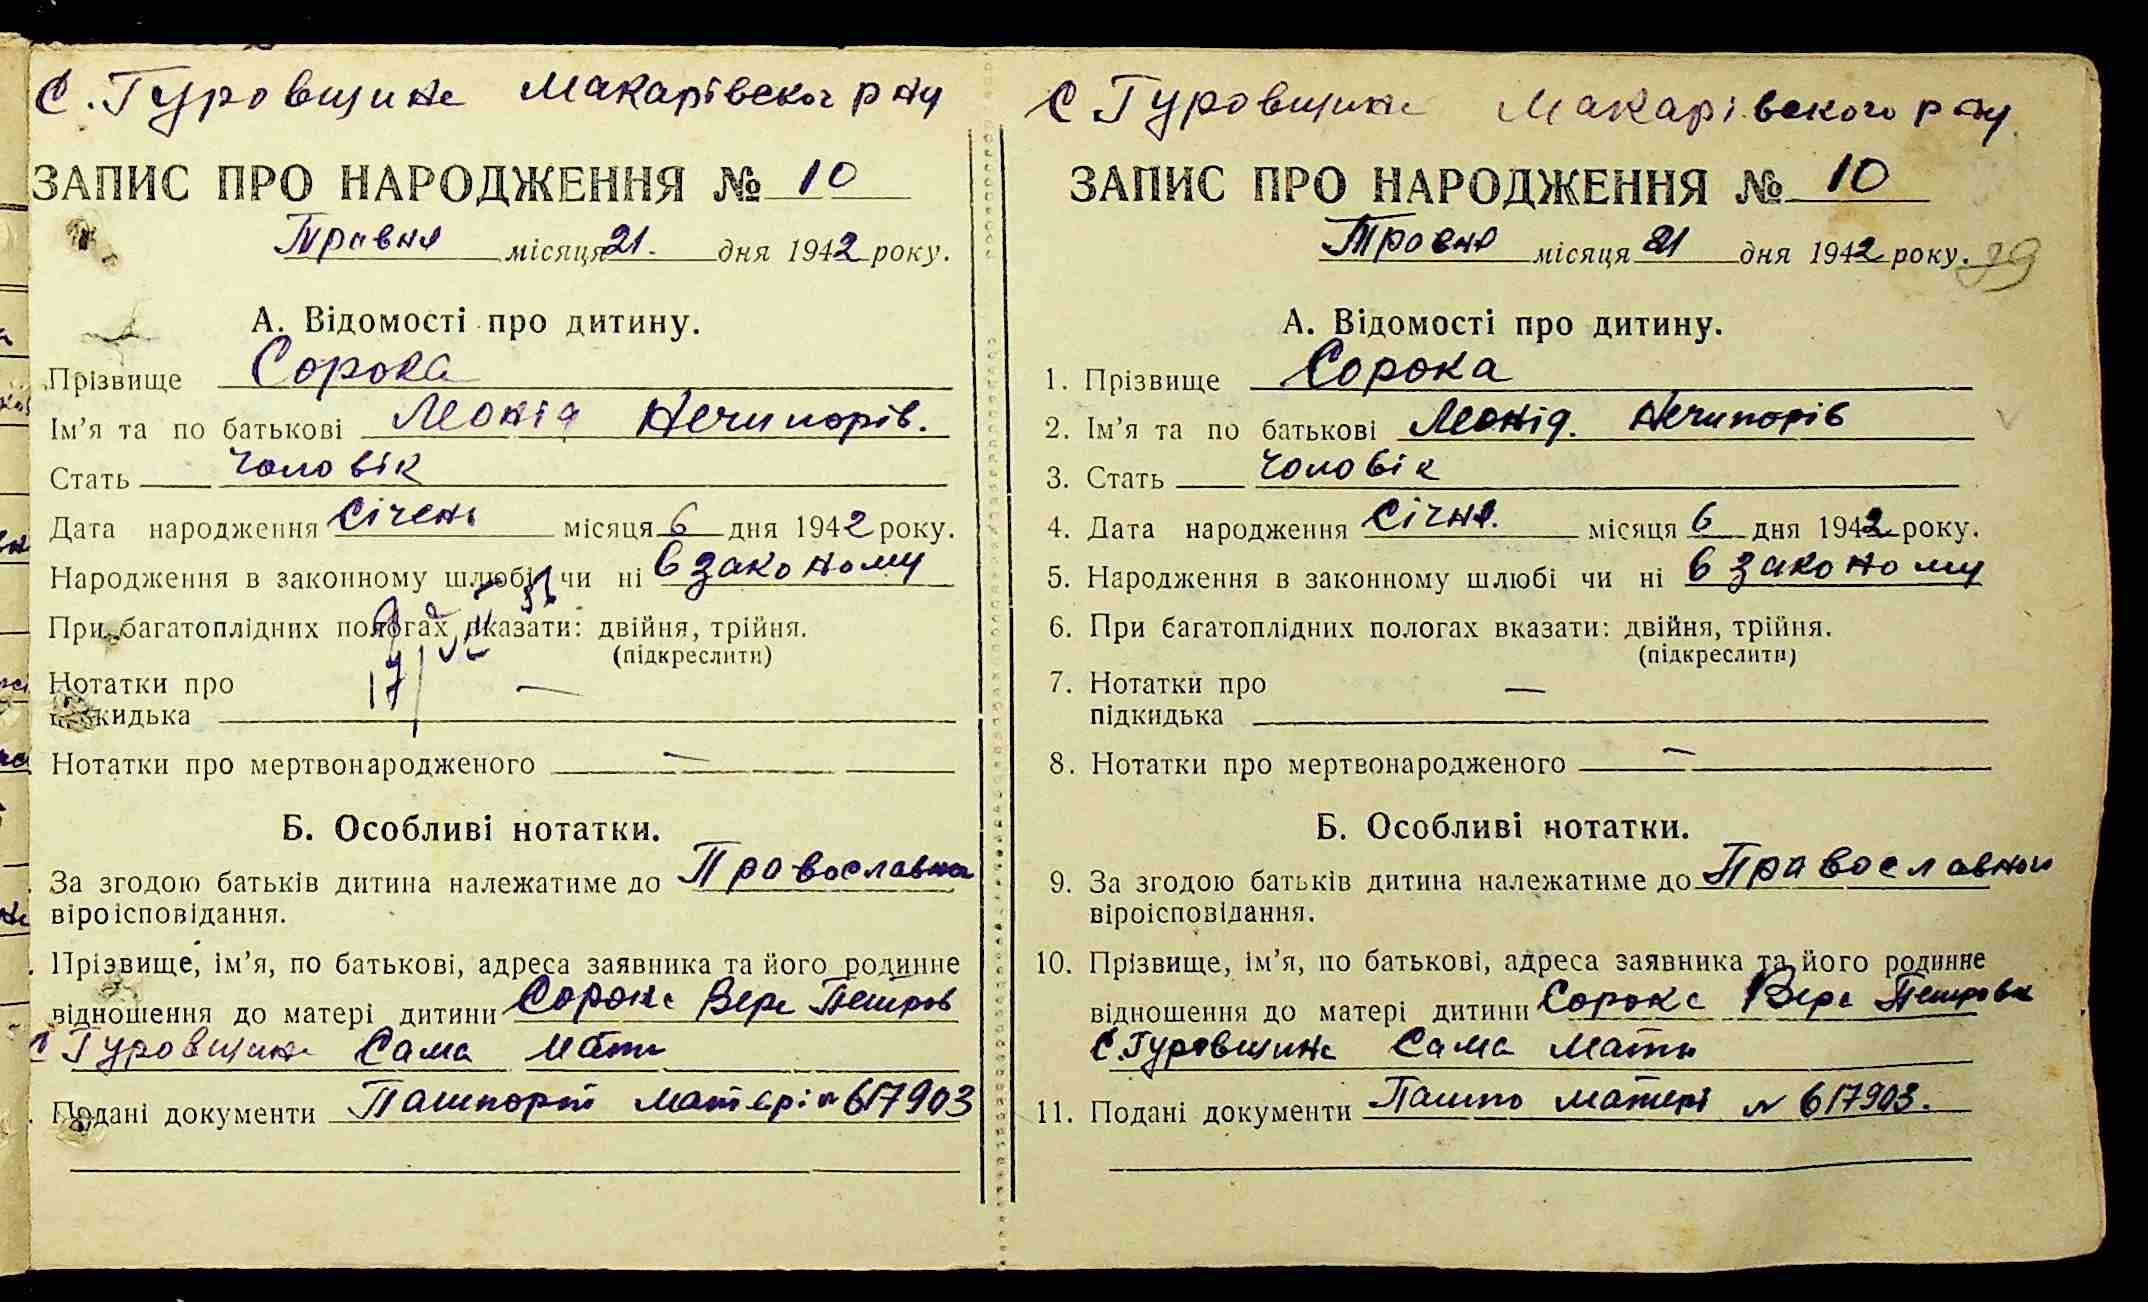 с. Гуровщина Макарівског р ну
ЗАПИС ПРО НАРОДЖЕННЯ № 10
Травня місяця 21. дня 1942 року.
А. Відомості про дитину.
Прізвище Сорока
Ім’я та по батькові Леонід Нечипорів.
Стать Чоловік
Дата народження Січень місяця 6 дня 1942 року.
Народження в законному шлюбі чи ні в законому
При багатоплідних пологах вказати: двійня, трійня.
(підкреслити)
Нотатки про
підкидька —
Нотатки про мертвонародженого —
Б. Особливі нотатки.
За згодою батьків дитина належатиме до Православна
віроісповідання.
Прізвище, ім’я, по батькові, адреса заявника та його родинне
відношення до матері дитини Сорока Вера Петров
С Гуровщина Сама Мати
Подані документи Пашпорт матєрі № 617903
с Гуровщина Макарівского р ну
ЗАПИС ПРО НАРОДЖЕННЯ № 10
Травня місяця 21 дня 1942 року. 39
А. Відомості про дитину.
1. Прізвище Сорока
2. Ім’я та по батькові Леонід. Нечипорів
3. Стать Чоловік
4. Дата народження Січня. місяця 6 дня 1942 року.
5. Народження в законному шлюбі чи ні в законому
6. При багатоплідних пологах вказати: двійня, трійня.
(підкреслити)
7. Нотатки про
підкидька —
8. Нотатки про мертвонародженого —
Б. Особливі нотатки.
9. За згодою батьків дитина належатиме до Православной
віроісповідання.
10. Прізвище, ім’я, по батькові, адреса заявника та його родинне
відношення до матері дитини Сорока Вера Петровн
С. Гуровщина Сама Мати
11. Подані документи Пашпо матері № 617903.